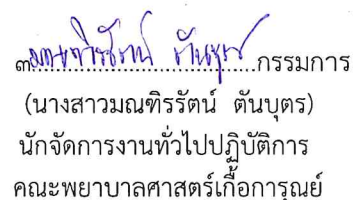 ๓.มณฑิรรัตน์ ตันบุตร.กรรมการ
(นางสาวมณฑิรรัตน์ ตันบุตร)
นักจัดการงานทั่วไปปฏิบัติการ
คณะพยาบาลศาสตร์เกื้อการุณย์